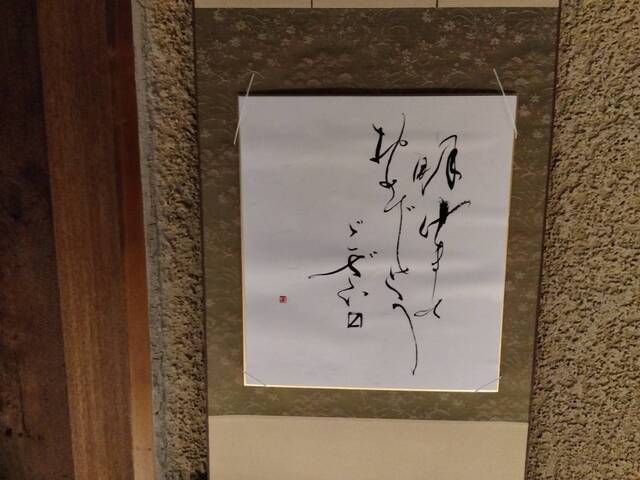 明けまして
おめでとう
ござい〼